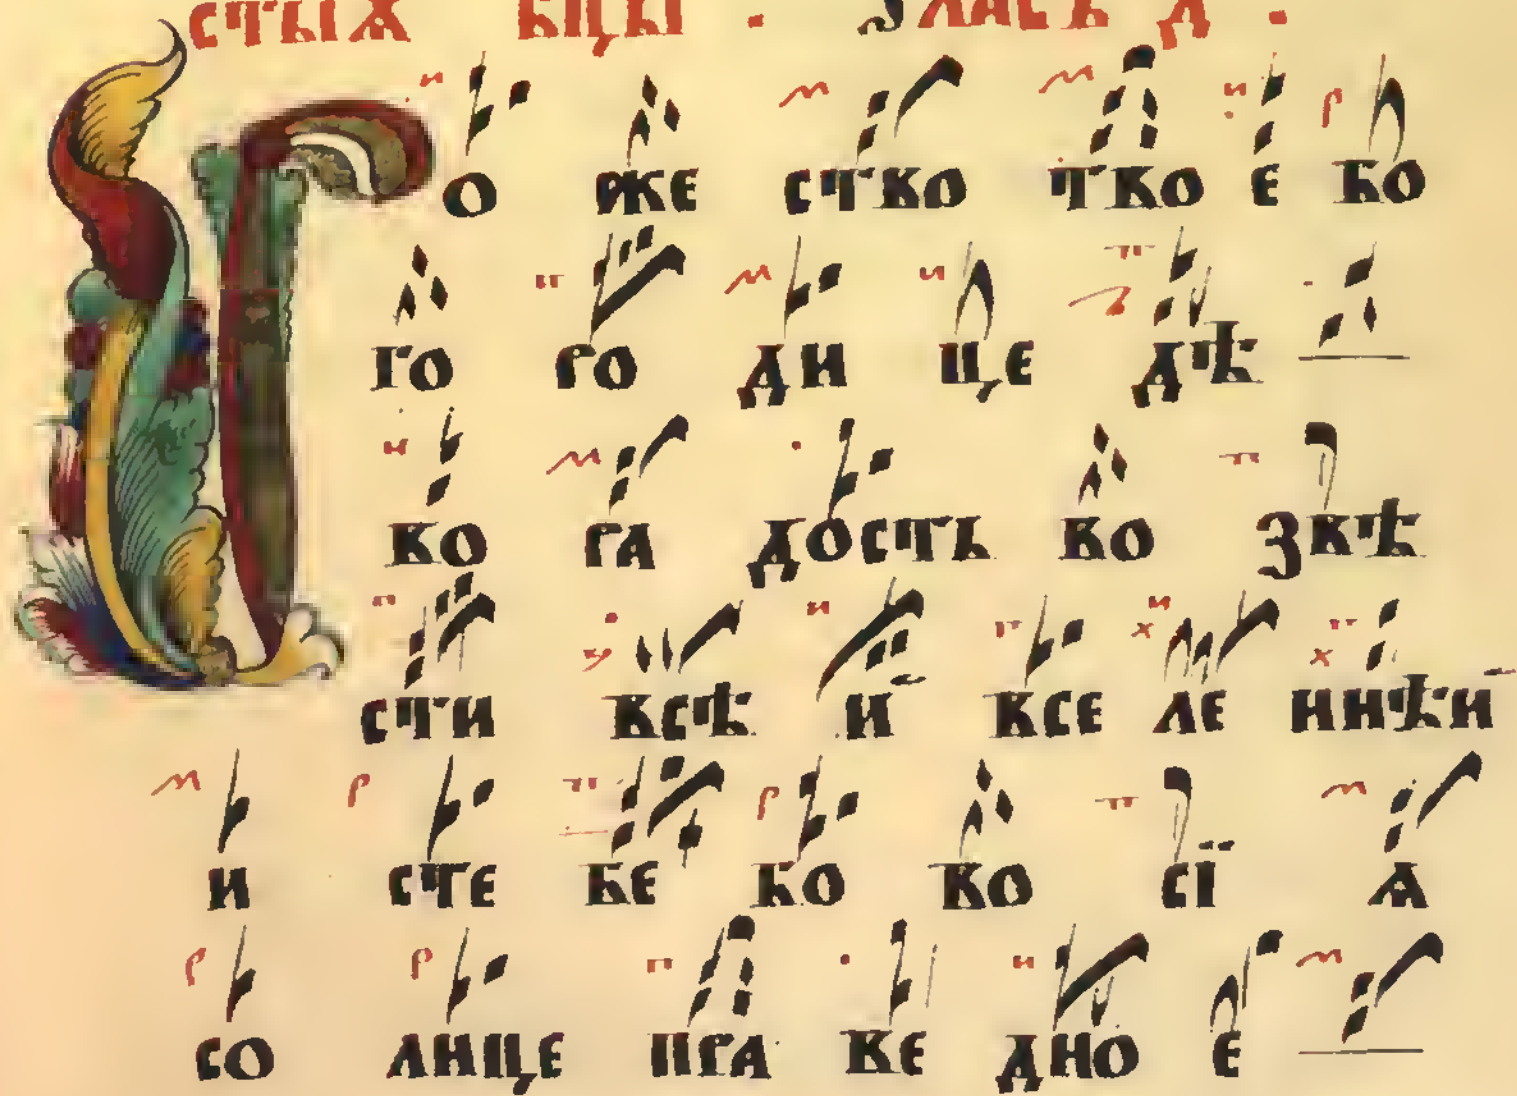 стыѧ бцы . гласъ д .
Ро же ство тво е бо
го ро ди це дѣ
во ра дость во звѣ
сти всѣ и всe ле ннѣи
и сте бе бо во сї ѧ
со лнце пра ве дно е